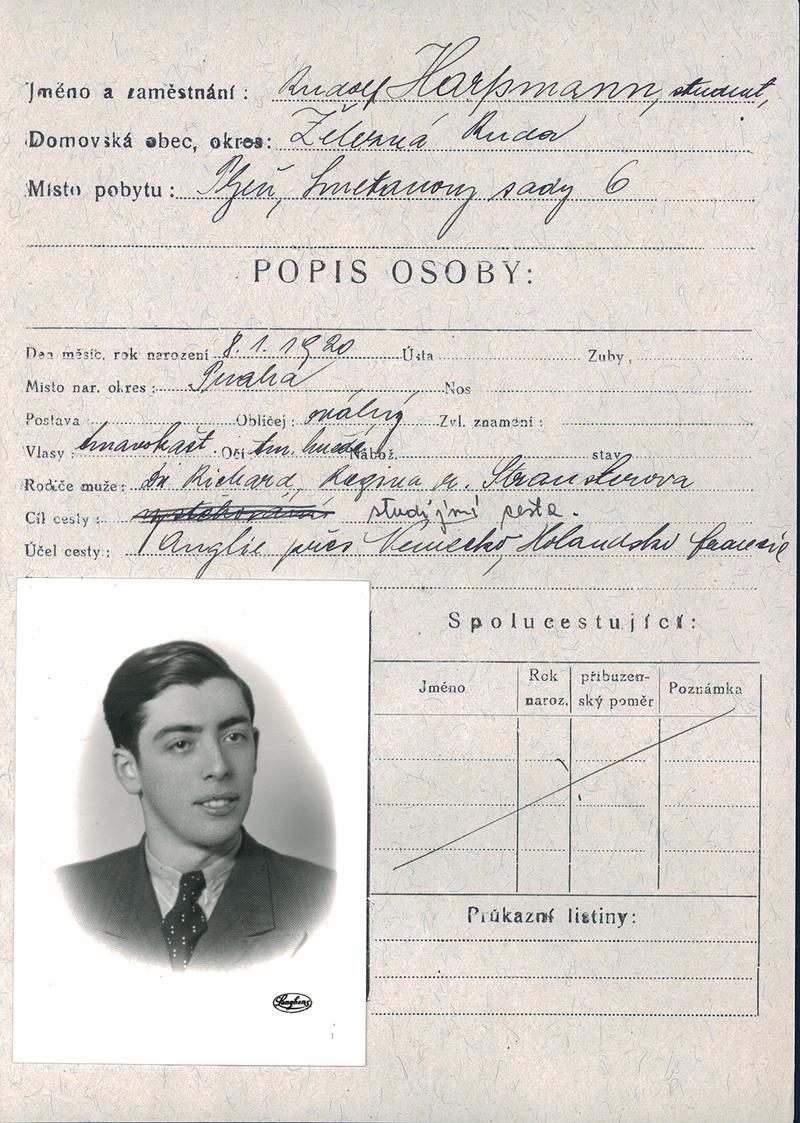 Jméno a zaměstnání: Rudolf Harpmann, student,
Domovská obec, okres: Železná Ruda
Místo pobytu: Plzeň, Smetanovy sady 6
POPIS OSOBY:
Den měsíc, rok narození 8.1.1920 Ústa Zuby
Místo nar. okres: Praha Nos
Postava Obličej: oválný Zvl. znamení:
Vlasy: tmavokašt Oči tm. hnědé Nábož. stav
Rodiče muže: Dr Richard, Regina r.
Cíl cesty: studijní cesta.
Účel cesty: Anglie přes Německo, Holandsko Francie
Spolucestující:
Jméno Rok naroz. příbuzenský poměr Poznámka
Průkazní listiny:
Langhans